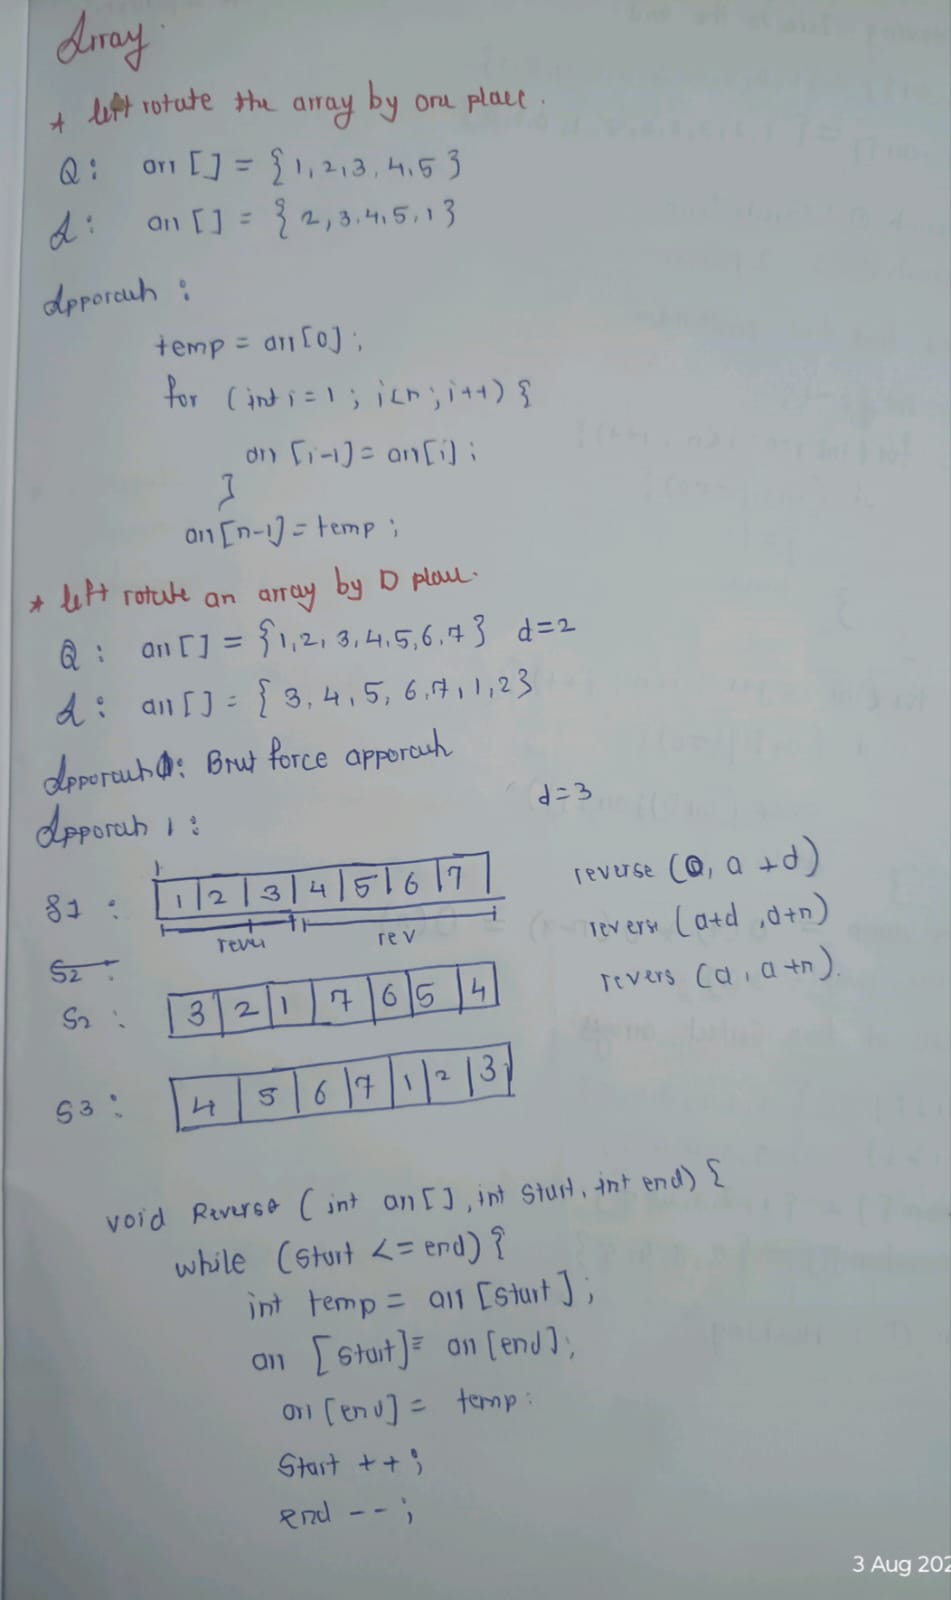 Array
* left rotate the array by one place.
Q: arr [] = {1,2,3,4,5}
A: arr [] = {2,3,4,5,1}
Apporach:
temp = arr[0];
for (int i=1; i<n; i++) {
arr [i-1] = arr[i];
}
arr[n-1] = temp;
* left rotate an array by D place.
Q: arr [] = {1,2,3,4,5,6,7} d=2
A: arr [] = {3,4,5,6,7,1,2}
Apporach: Brut force apporach
d=3
Apporach 1:
S1: 1 2 3 4 5 6 7 reverse (a, a+d)
rever rev revers (a+d, a+n)
S2:
S2: 3 2 1 7 6 5 4 revers (a, a+n).
S3: 4 5 6 7 1 2 3
void Reverse (int arr[], int start, int end) {
while (start <= end) {
int temp = arr [start];
arr [start] = arr [end];
arr [end] = temp;
start ++;
end --;
3 Aug 202